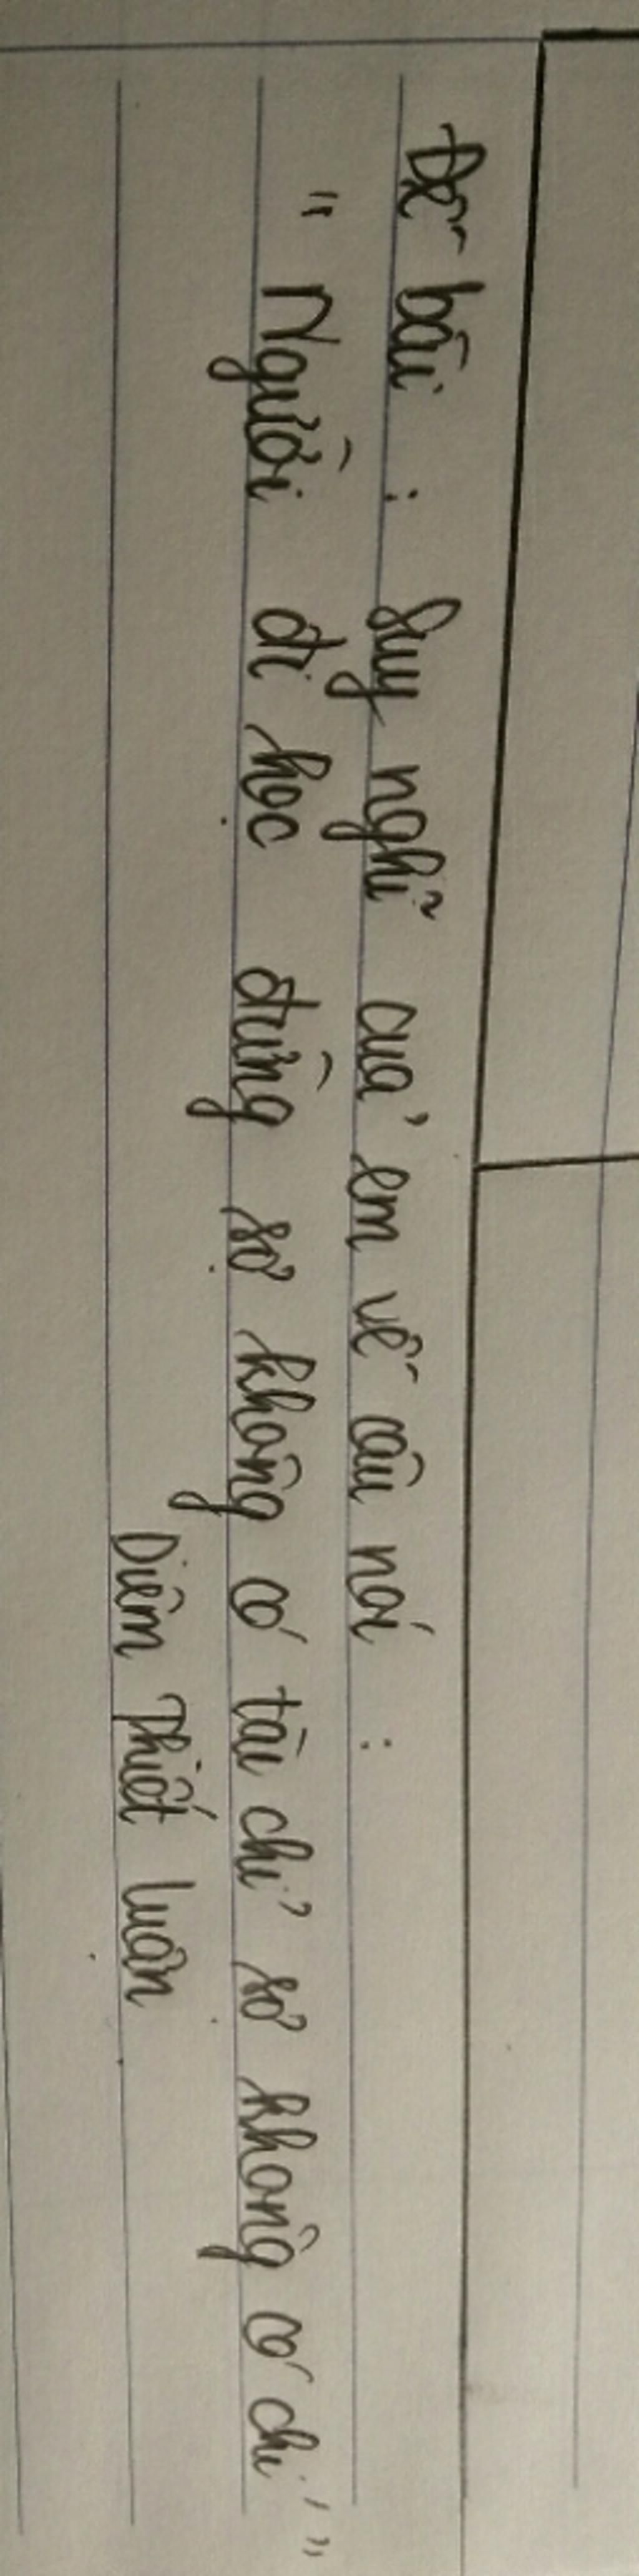 Đề bài : Suy nghĩ của em về câu nói :
" Người đi học đừng sợ không có tài chỉ sợ không có chí "
Diêm Thiết Luân